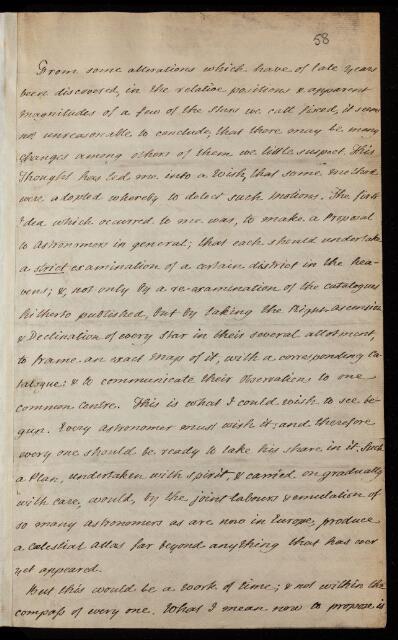 58
From some alterations which have of late years
been discovered, in the relative positions & apparent
magnitudes of a few of the stars we call fixed, it seems
not unreasonable to conclude, that there may be many
changes among others of them we little suspect. This
thought has led me into a wish, that some method
were adopted whereby to detect such motions. The first
Idea which occurred to me was, to make a Proposal
to Astronomers in general; that each should undertake
a strict examination of a certain district in the hea-
vens; &, not only by a re-examination of the catalogues
hitherto published, but by taking the Right ascension
& Declination of every star in their several allotment,
to frame an exact map of it, with a corresponding ca-
talogue; & to communicate their observations to one
common centre. This is what I could wish to see be-
gun. Every Astronomer must wish it; and therefore
every one should be ready to take his share in it. Such
a Plan, undertaken with spirit, & carried on gradually
with care, would, by the joint labours & emulation of
so many astronomers as are now in Europe, produce
a cœlestial atlas far beyond anything that has ever
yet appeared.
But this would be a work of time; & not within the
compass of every one. What I mean now to propose is